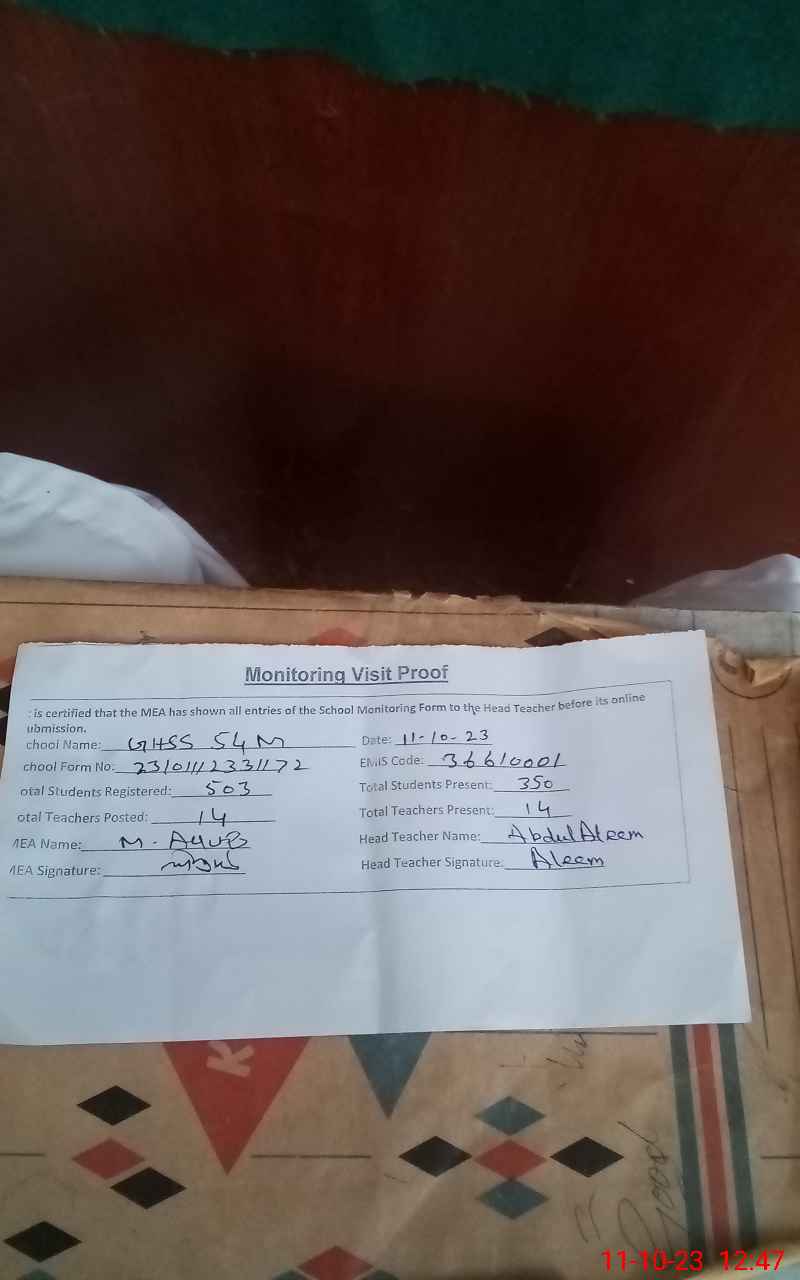 Monitoring Visit Proof
: is certified that the MEA has shown all entries of the School Monitoring Form to the Head Teacher before its online
ubmission.
chool Name: GHSS 54 M Date: 11-10-23
chool Form No: 23101112331172 EMIS Code: 36610001
otal Students Registered: 503 Total Students Present: 350
otal Teachers Posted: 14 Total Teachers Present: 14
MEA Name: M. Ayub Head Teacher Name: Abdul Aleem
MEA Signature: Head Teacher Signature: Aleem
K
Good
11-10-23 12:47